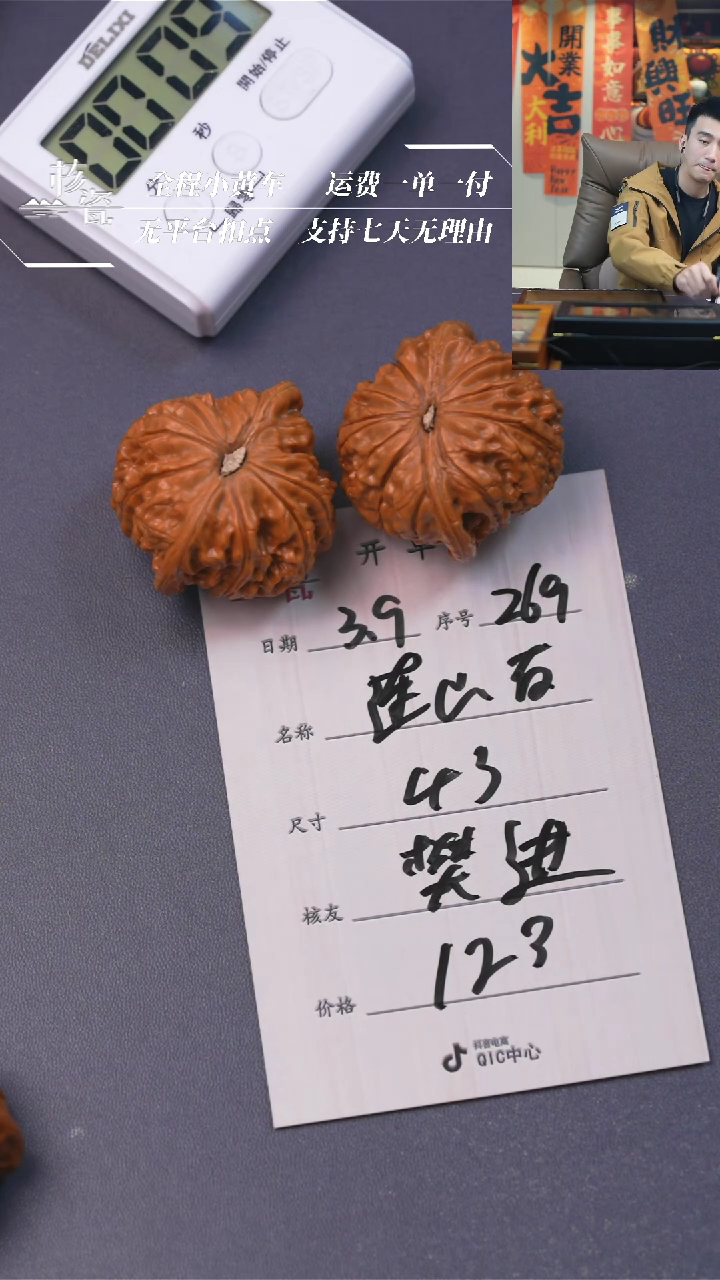 DELIXI
00:09
開始/停止
秒
核瓷
全程小黄车 运费一单一付
无平台扣点 支持七天无理由
開業
大吉
大利
事事如意
心
財興旺
开单
日期 3.9 序号 269
名称 莲山百
尺寸 43
核友 樊迪
价格 123
抖音电商
QIC中心